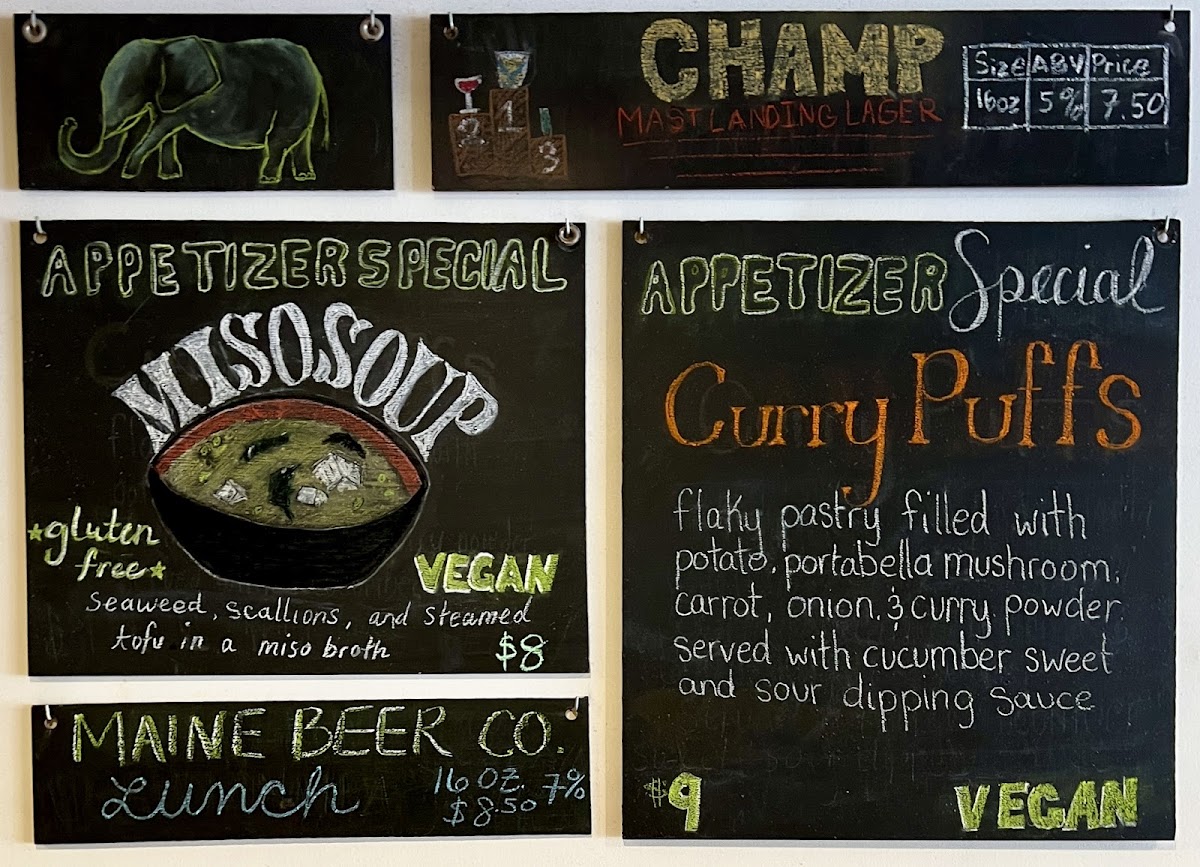 CHAMP
MAST LANDING LAGER
Size ABV Price
16oz 5% 7.50
2 1 3
APPETIZER SPECIAL
MISO SOUP
gluten
free
VEGAN
seaweed, scallions, and steamed
tofu in a miso broth
$8
MAINE BEER CO.
Lunch
16 OZ. 7%
$8.50
APPETIZER Special
Curry Puffs
flaky pastry filled with
potato, portabella mushroom,
carrot, onion, & curry powder
served with cucumber sweet
and sour dipping sauce
$9
VEGAN